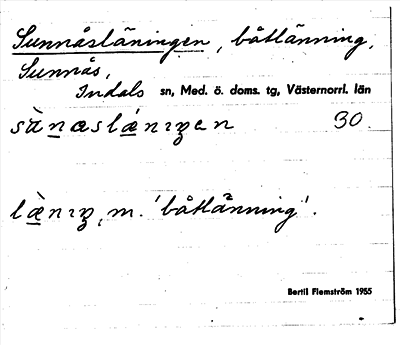 Sunnåsläningen, båtlänning,
Sunnås,
Indals sn, Med. ö. doms. tg, Västernorrl. län
30.
m. 'båtlänning'.
Bertil Flemström 1955